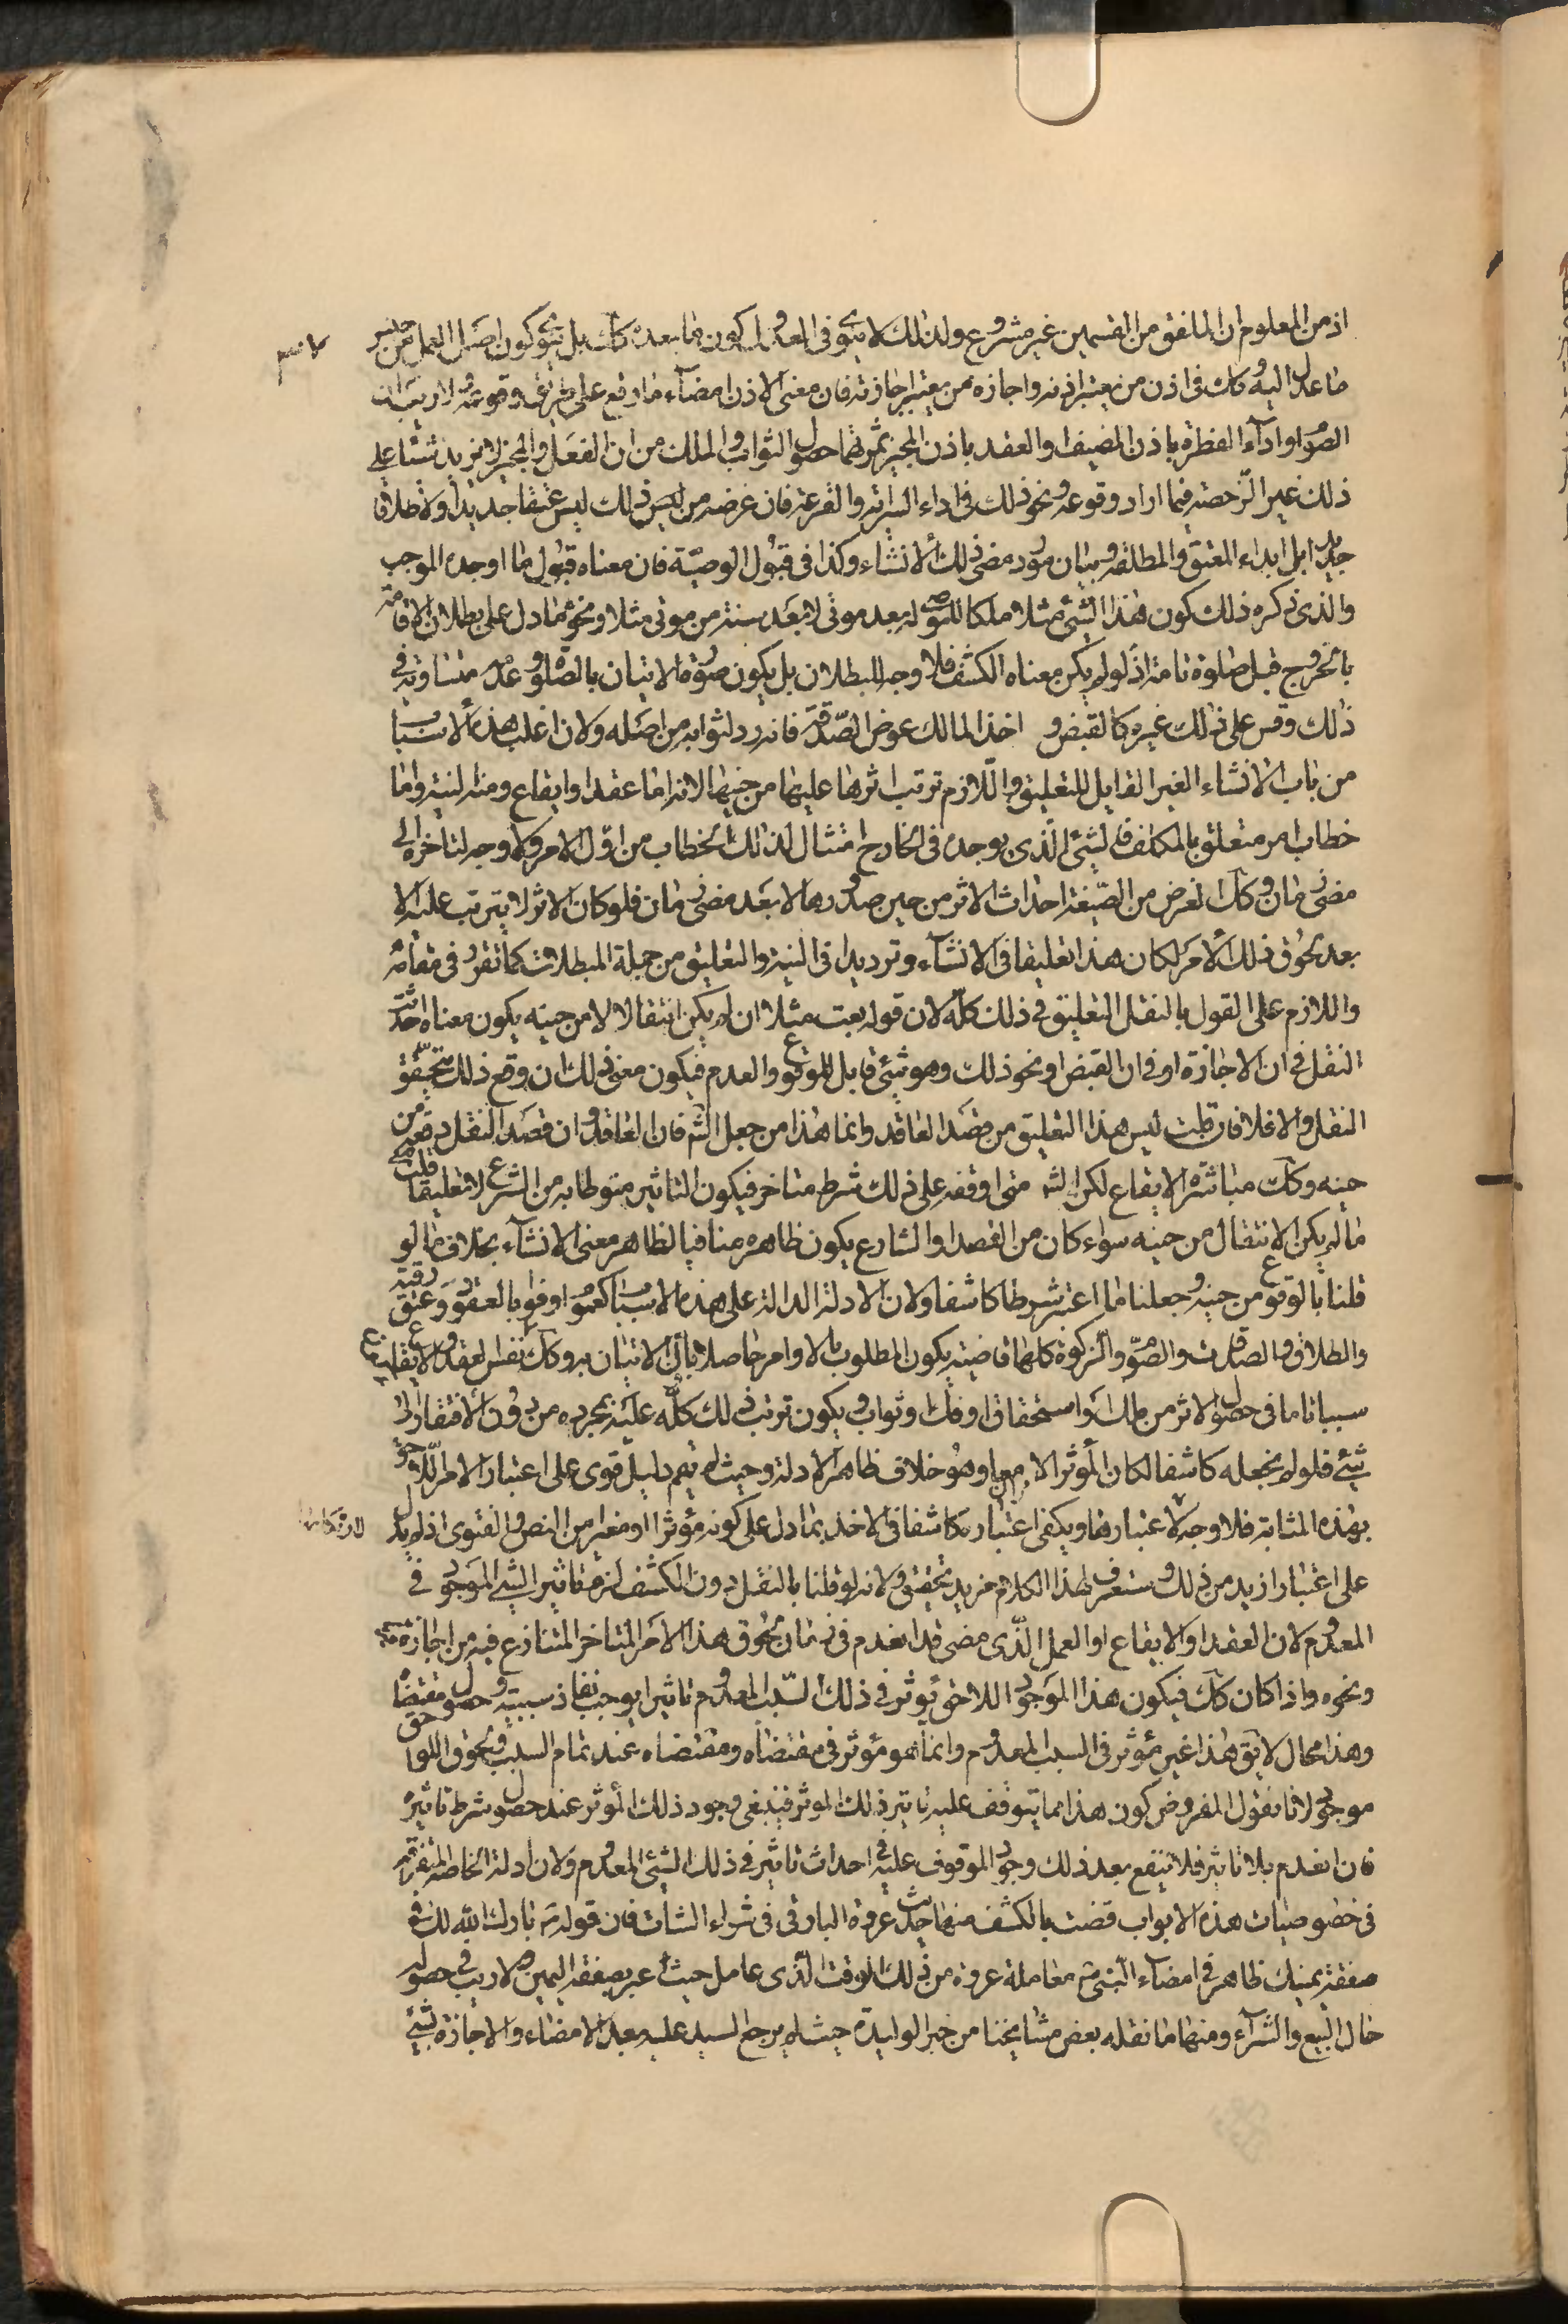 اذ من المعلوم ان الملفق من القسمين غير مشروع ولذلك لا ينوى فى المعدول كون ما بعده كك بل ينوى كون اصل العمل من جنس
ما عدل اليه وكك فى اذن من يعتبر اذنه واجازه من يعتبر اجازته فان معنى الاذن امضاء ما وقع على طريق وقوعه ولا ريب ان
الصوم او اداء الفطرة باذن المضيف او العقد باذن المجيز ثمرتهما حصول الثواب والملك من ان الفعل والمجيز لا يزيد شيئا على
ذلك غير الرخصة فيما اراد وقوعه ونحو ذلك فى اداء السراية والقرعة فان غرضه من ذلك ليس عتقا جديدا ولا طلاقا
جديدا بل ابداء المعتق والمطلقة وبيان مورد مضى ذلك الانشاء وكذا فى قبول الوصية فان معناه قبول ما اوجده الموجب
والذى ذكره ذلك كون هذا الشئ مثلا ملكا للموصى له بعد موتى لا بعد سنة من موتى مثلا ونحوه ما دل على بطلان الاقامة
بالخروج قبل صلوة تامة اذ لو لم يكن معناه الكشف فلا وجه للبطلان بل يكون صورة الاتيان بالصلوة وعدمه متساوية فى
ذلك وقس على ذلك غيره كالقبض و اخذ المالك عوض الصدقة فانه رد لثوابه من اصله ولان اغلب هذه الاسباب
من باب الانشاء الغير القابل للتعليق واللازم ترتب اثرها عليها من حينها لانه اما عقد او ايقاع ومنه النية واما
خطاب امر متعلق بالمكلف فالشئ الذى يوجده فى الخارج امتثال لذلك الخطاب من اول الامر ولا وجه لتاخره الى
مضى زمان وكك الغرض من الصيغة احداث الاثر من حين صدورها لا بعد مضى زمان فلو كان الاثر لا يترتب عليه الا
بعد لحوق ذلك الامر لكان هذا تعليقا فى الانشاء وترديدا فى النية والتعليق من جملة المبطلات كما تقرر فى مقامه
واللازم على القول بالنقل التعليق فى ذلك كله لان قوله بعت مثلا ان لم يكن انتقالا لا من حينه يكون معناه احدثت
النقل فى ان الاجازة او فى ان القبض او نحو ذلك وهو شئ قابل للوقوع والعدم فيكون معنى ذلك ان وقع ذلك يتحقق
النقل والا فلا فان قلت ليس هذا التعليق من قصد العاقد وانما هذا من جعل الش فان العاقد وان قصد النقل دفعة من
حينه وكك مباشرة الايقاع لكن الش متى اوقفه على ذلك شرط متاخر فيكون التاثير منوطا به من الشرع لا تعليقا قلت
ما لم يكن الانتقال من حينه سواء كان من القصد او الشارع يكون ظاهره منافيا لظاهر معنى الانشاء بخلاف ما لو
قلنا بالوقوع من حينه وجعلنا ما اعتبر شرطا كاشفا ولان الادلة الدالة على هذه الاسباب كعموم اوفوا بالعقود وعتق رقبة
والطلاق والصلوت والصوم والزكوة كلها قاضية بكون المطلوب بالاوامر حاصلا بان الاتيان به وكك نفس العقد والايقاع
سببا تاما فى حصول الاثر من ملك او استحقاق او فك وثواب ويكون ترتب ذلك كله عليه بمجرده من دون الافتقار الى
شئ فلو لم يجعله كاشفا لكان المؤثر الامر معا وهو خلاف ظاهر الادلة وحيث لم يقم دليل قوى على اعتبار الامر اللاحق
بهذه المثابة فلا وجه لاعتبارها ويكفى اعتباره كاشفا فى الاخذ بما دل على كونه مؤثرا او مغيرا من النص والفتوى اذ لم يدل
على اعتبار ازيد من ذلك وستعرف لهذا الكلام مزيد تحقيق ولانه لو قلنا بالنقل دون الكشف لزم تاثير الشئ الموجود فى
المعدوم لان العقد او الايقاع او العمل الذى مضى قد انعدم فى زمان لحوق هذا الامر المتاخر المتنازع فيه من اجازة
ونحوه واذا كان كك فيكون هذا الموجود اللاحق يؤثر فى ذلك السبب المعدوم تاثيرا يوجب نفاذ سببيته وحصول مقتضاه
وهذا محال لا يق هذا غير مؤثر فى السبب المعدوم وانما هو مؤثر فى مقتضاه ومقتضاه عند تمام السبب ولحوق اللواحق
موجود لانا نقول المفروض كون هذا مما يتوقف عليه تاثير ذلك المؤثر فينبغى وجود ذلك المؤثر عند حصول شرط تاثيره
فان انعدم بلا تاثير فلا ينفع بعد ذلك وجود الموقوف عليه فى احداث تاثير فى ذلك الشئ المعدوم ولان ادلة الخاصة المتفرقة
فى خصوصيات هذه الابواب قضت بالكشف منها حديث عروة البارقى فى شراء الشاة فان قوله ص بارك الله لك فى
صفقة يمينك ظاهر فى امضاء النبى ص معاملة عروة من ذلك الوقت الذى عامل حيث عبر بصفقة اليمين ولا ريب فى حصوله
حال البيع والشراء ومنها ما نقله بعض مشايخنا من خبر الوليدة حيث لم يرجع السيد عليه بعد الامضاء والاجازة بشئ